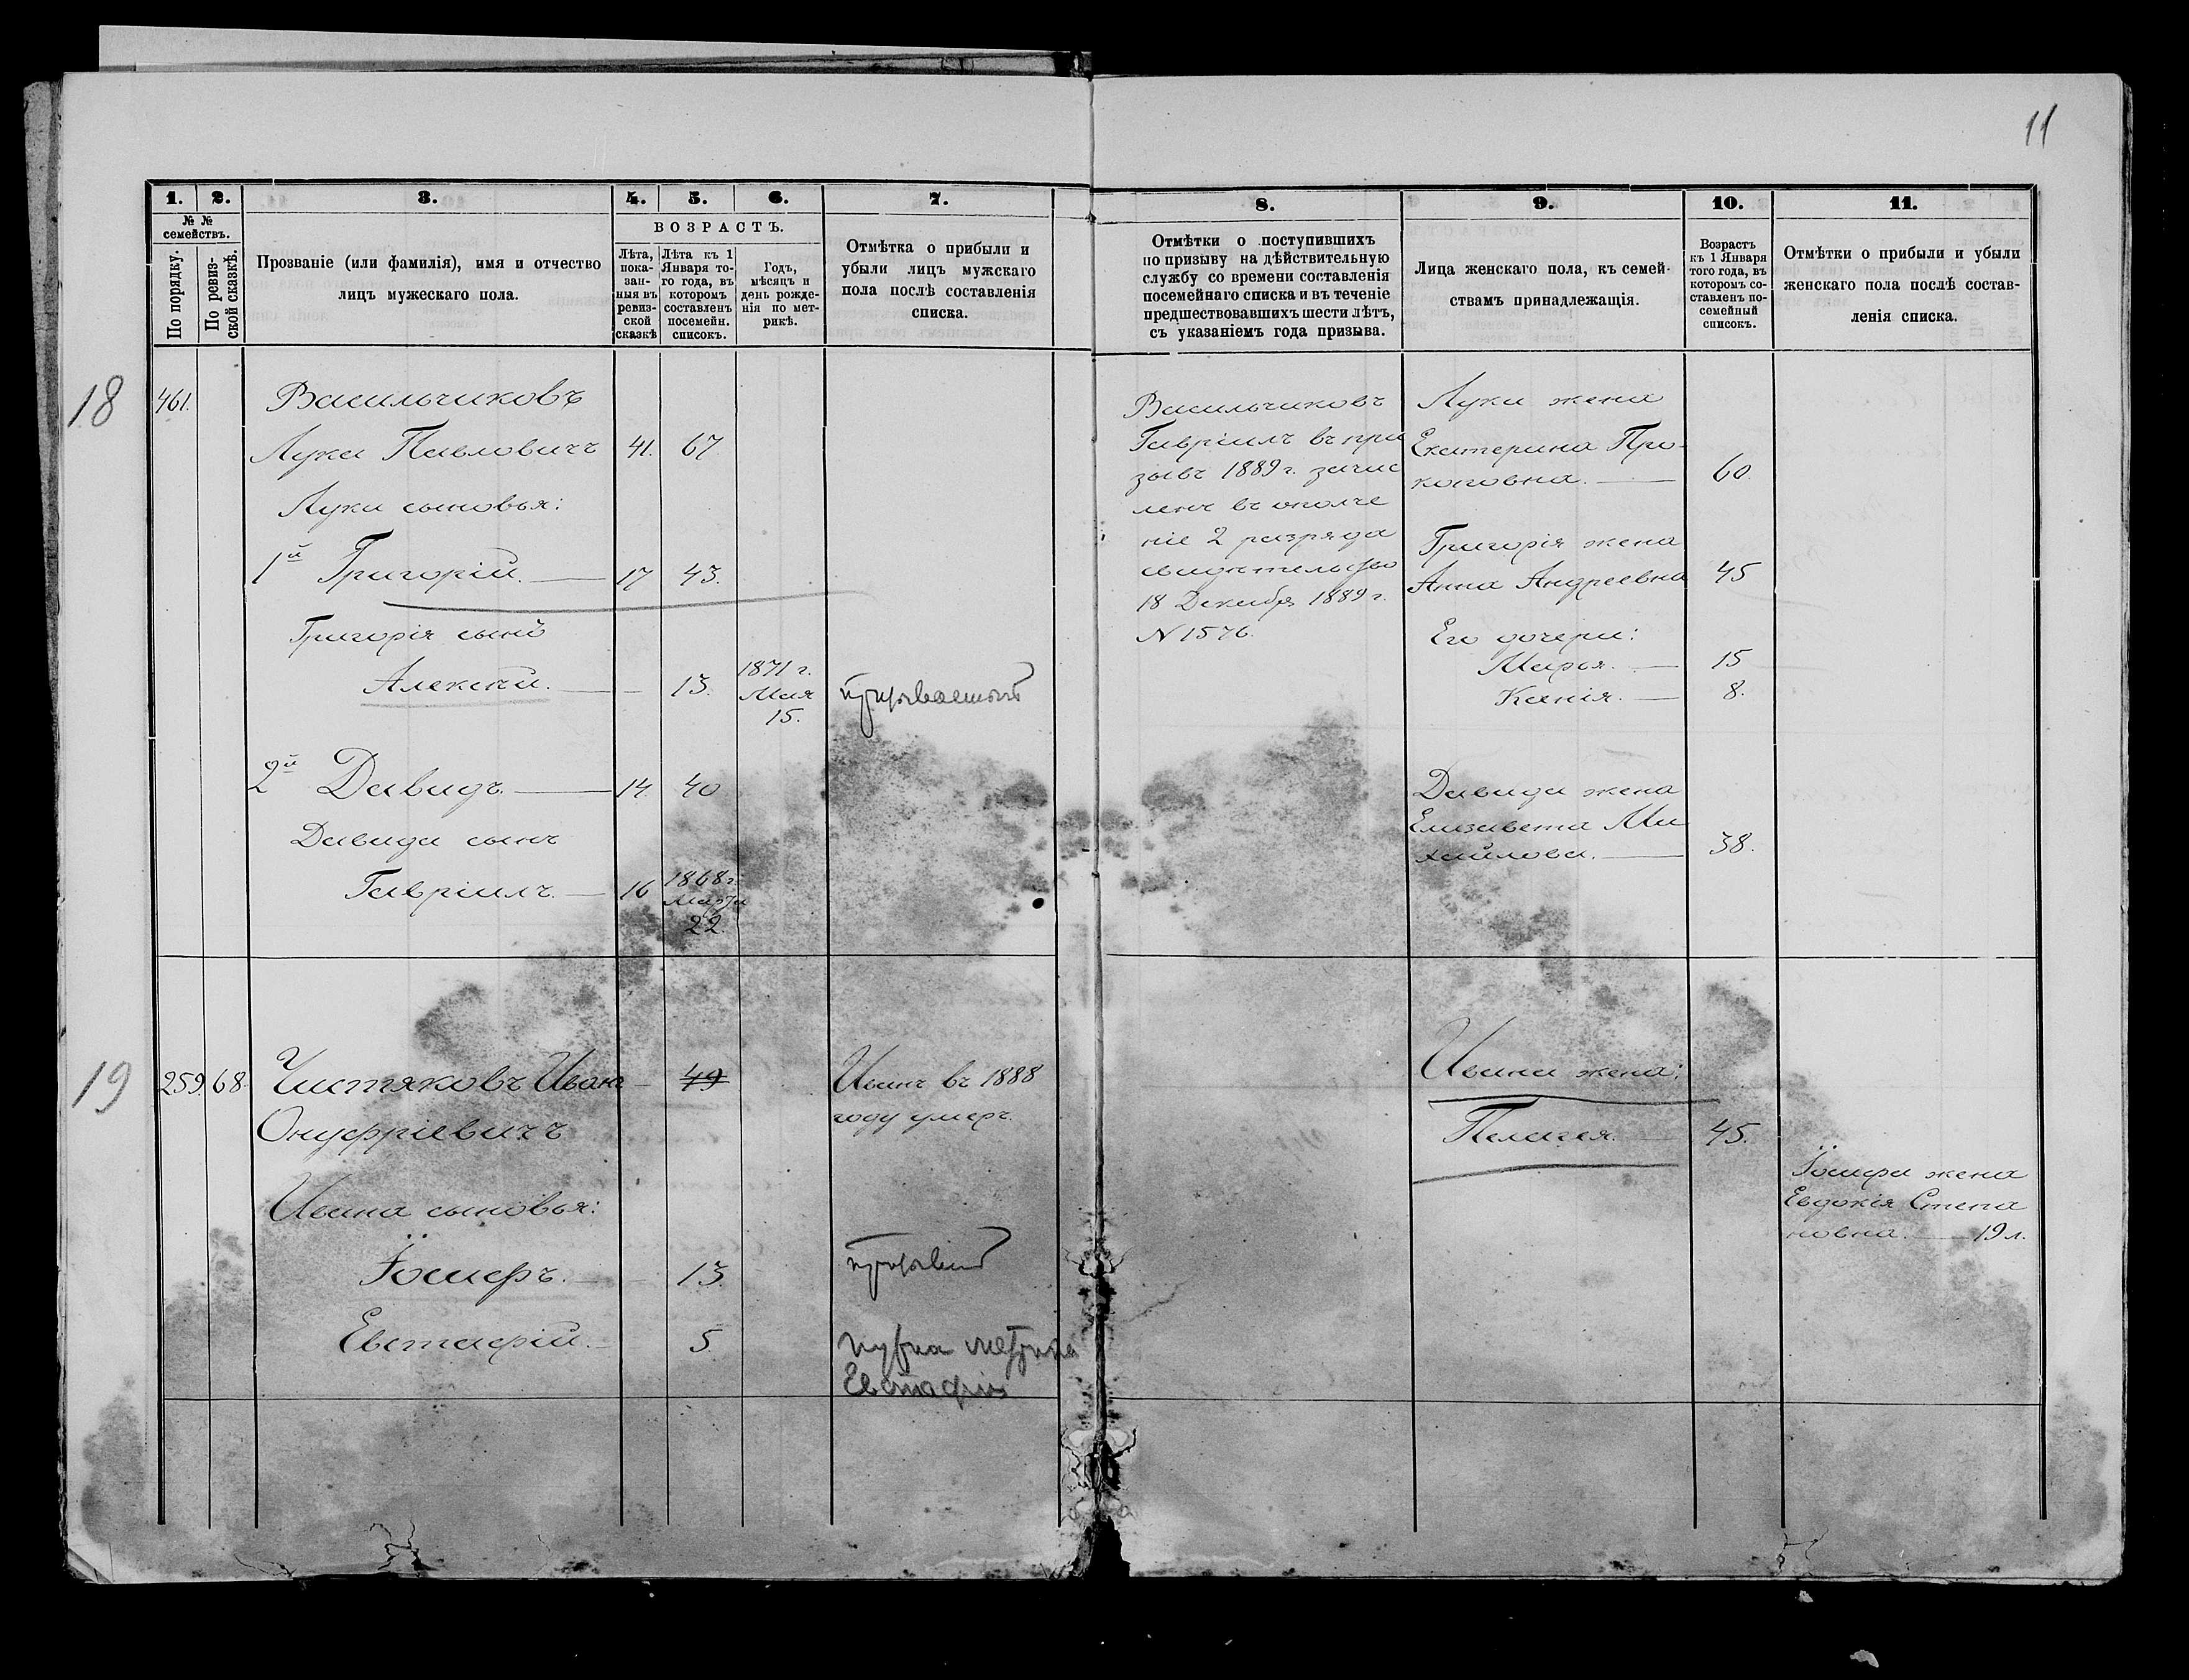 11
1.
2.
3.
4.
5.
6.
7.
8.
9.
10.
11.
№ №
семействъ.
По порядку.
По ревиз-
ской сказкѣ.
Прозваніе (или фамилія), имя и отчество
лицъ мужескаго пола.
ВОЗРАСТЪ.
Лѣта,
пока-
зан-
ныя въ
ревиз-
ской
сказкѣ
Лѣта къ 1
Января то-
го года, въ
которомъ
составленъ
посемейн.
списокъ.
Годъ,
мѣсяцъ и
день рожде-
нія по мет-
рикѣ.
Отмѣтка о прибыли и
убыли лицъ мужскаго
пола послѣ составленія
списка.
Отмѣтки о поступившихъ
по призыву на дѣйствительную
службу со времени составленія
посемейнаго списка и въ теченіе
предшествовавшихъ шести лѣтъ,
съ указаніемъ года призыва.
Лица женскаго пола, къ семей-
ствамъ принадлежащія.
Возрастъ
къ 1 Января
того года, въ
которомъ со-
ставленъ по-
семейный
списокъ.
Отмѣтки о прибыли и убыли
женскаго пола послѣ состав-
ленія списка.
18
461.
Васильчиковъ
Лука Павловичъ 41. 67.
Луки сыновья:
1й Григорій. 17 43.
Григорія сынъ
Алексѣй. 13.
1871 г.
Мая
15.
2й Давидъ. 14. 40
Давида сынъ
Гавріилъ. 16
1868 г.
Марта
22.
Васильчиковъ
Гавріилъ въ при
зывъ 1889 г. зачис
ленъ въ ополче
ніе 2 разряда
свидѣтельство
18 Декабря 1889 г.
N 1576.
Луки жена
Екатерина Про-
кофовна. 60.
Григорія жена
Анна Андреевна 45
Его дочери:
Марья. 15
Ксенія. 8.
Давида жена
Елизавета Ми
хайлова. 38.
19
259. 68.
Чистяковъ Иванъ 49
Онуфріевичъ
Ивана сыновья:
Іосифъ. 13.
Евстафій. 5
Иванъ въ 1888
году умеръ.
нужна метрика
Евстафія
Ивана жена:
Пелагея. 45.
Іосифа жена
Евдокія Степа
новна. 19 л.